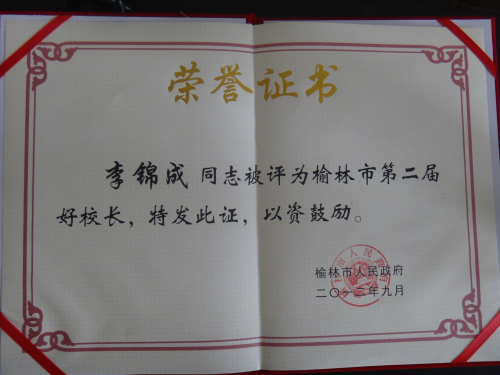 荣誉证书
李锦成 同志被评为榆林市第二届
好校长，特发此证，以资鼓励。
榆林市人民政府
二〇一二年九月